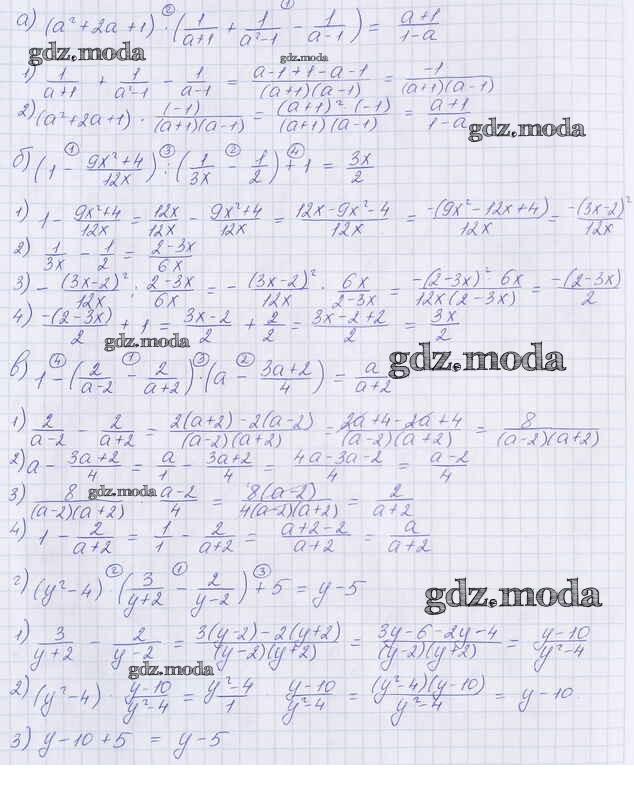 а) (a²+2a+1) · (1/(a+1) + 1/(a²-1) - 1/(a-1)) = (a+1)/(1-a)
gdz.moda gdz.moda
1) 1/(a+1) + 1/(a²-1) - 1/(a-1) = (a-1+1-a-1)/((a+1)(a-1)) = -1/((a+1)(a-1))
2) (a²+2a+1) · (-1)/((a+1)(a-1)) = ((a+1)² (-1))/((a+1)(a-1)) = (a+1)/(1-a)
gdz.moda
б) (1 - (9x²+4)/12x) : (1/3x - 1/2) + 1 = 3x/2
1) 1 - (9x²+4)/12x = 12x/12x - (9x²+4)/12x = (12x-9x²-4)/12x = -(9x²-12x+4)/12x = -(3x-2)²/12x
2) 1/3x - 1/2 = (2-3x)/6x
3) - (3x-2)²/12x : (2-3x)/6x = - (3x-2)²/12x · 6x/(2-3x) = (-(2-3x)² · 6x)/(12x(2-3x)) = -(2-3x)/2
4) -(2-3x)/2 + 1 = (3x-2)/2 + 2/2 = (3x-2+2)/2 = 3x/2
gdz.moda gdz.moda
в) 1 - (2/(a-2) - 2/(a+2)) · (a - (3a+2)/4) = a/(a+2)
1) 2/(a-2) - 2/(a+2) = (2(a+2)-2(a-2))/((a-2)(a+2)) = (2a+4-2a+4)/((a-2)(a+2)) = 8/((a-2)(a+2))
2) a - (3a+2)/4 = a/1 - (3a+2)/4 = (4a-3a-2)/4 = (a-2)/4
3) 8/((a-2)(a+2)) gdz.moda (a-2)/4 = 8(a-2)/(4(a-2)(a+2)) = 2/(a+2)
4) 1 - 2/(a+2) = 1/1 - 2/(a+2) = (a+2-2)/(a+2) = a/(a+2)
г) (y²-4) · (3/(y+2) - 2/(y-2)) + 5 = y-5
gdz.moda
1) 3/(y+2) - 2/(y-2) = (3(y-2)-2(y+2))/((y-2)(y+2)) = (3y-6-2y-4)/((y-2)(y+2)) = (y-10)/(y²-4)
gdz.moda
2) (y²-4) · (y-10)/(y²-4) = (y²-4)/1 · (y-10)/(y²-4) = ((y²-4)(y-10))/(y²-4) = y-10
3) y-10+5 = y-5